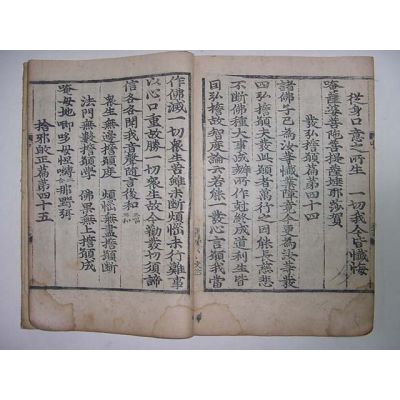 從身口意之所生 一切我今皆懺悔
唵薩婆菩陀菩提薩埵耶莎賀
發弘誓願篇第四十四
諸佛子已為汝等懺竟今更為汝等發
弘誓願夫發此願者萬行之因能長慈悲
不斷佛種大事成辦所以始終成道利生皆
因弘誓故智度論云若能一發心言願我當
作佛滅一切衆生苦雖未斷煩惱未行難事
以心口重故勝一切衆生故今勸發切須諦
信各各聞我音聲隨言後和
衆生無邊誓願度 煩惱無盡誓願斷
法門無數誓願學 佛果無上誓願成
唵母地卽哆母怛嚩那野弭
捨邪歸正篇第四十五